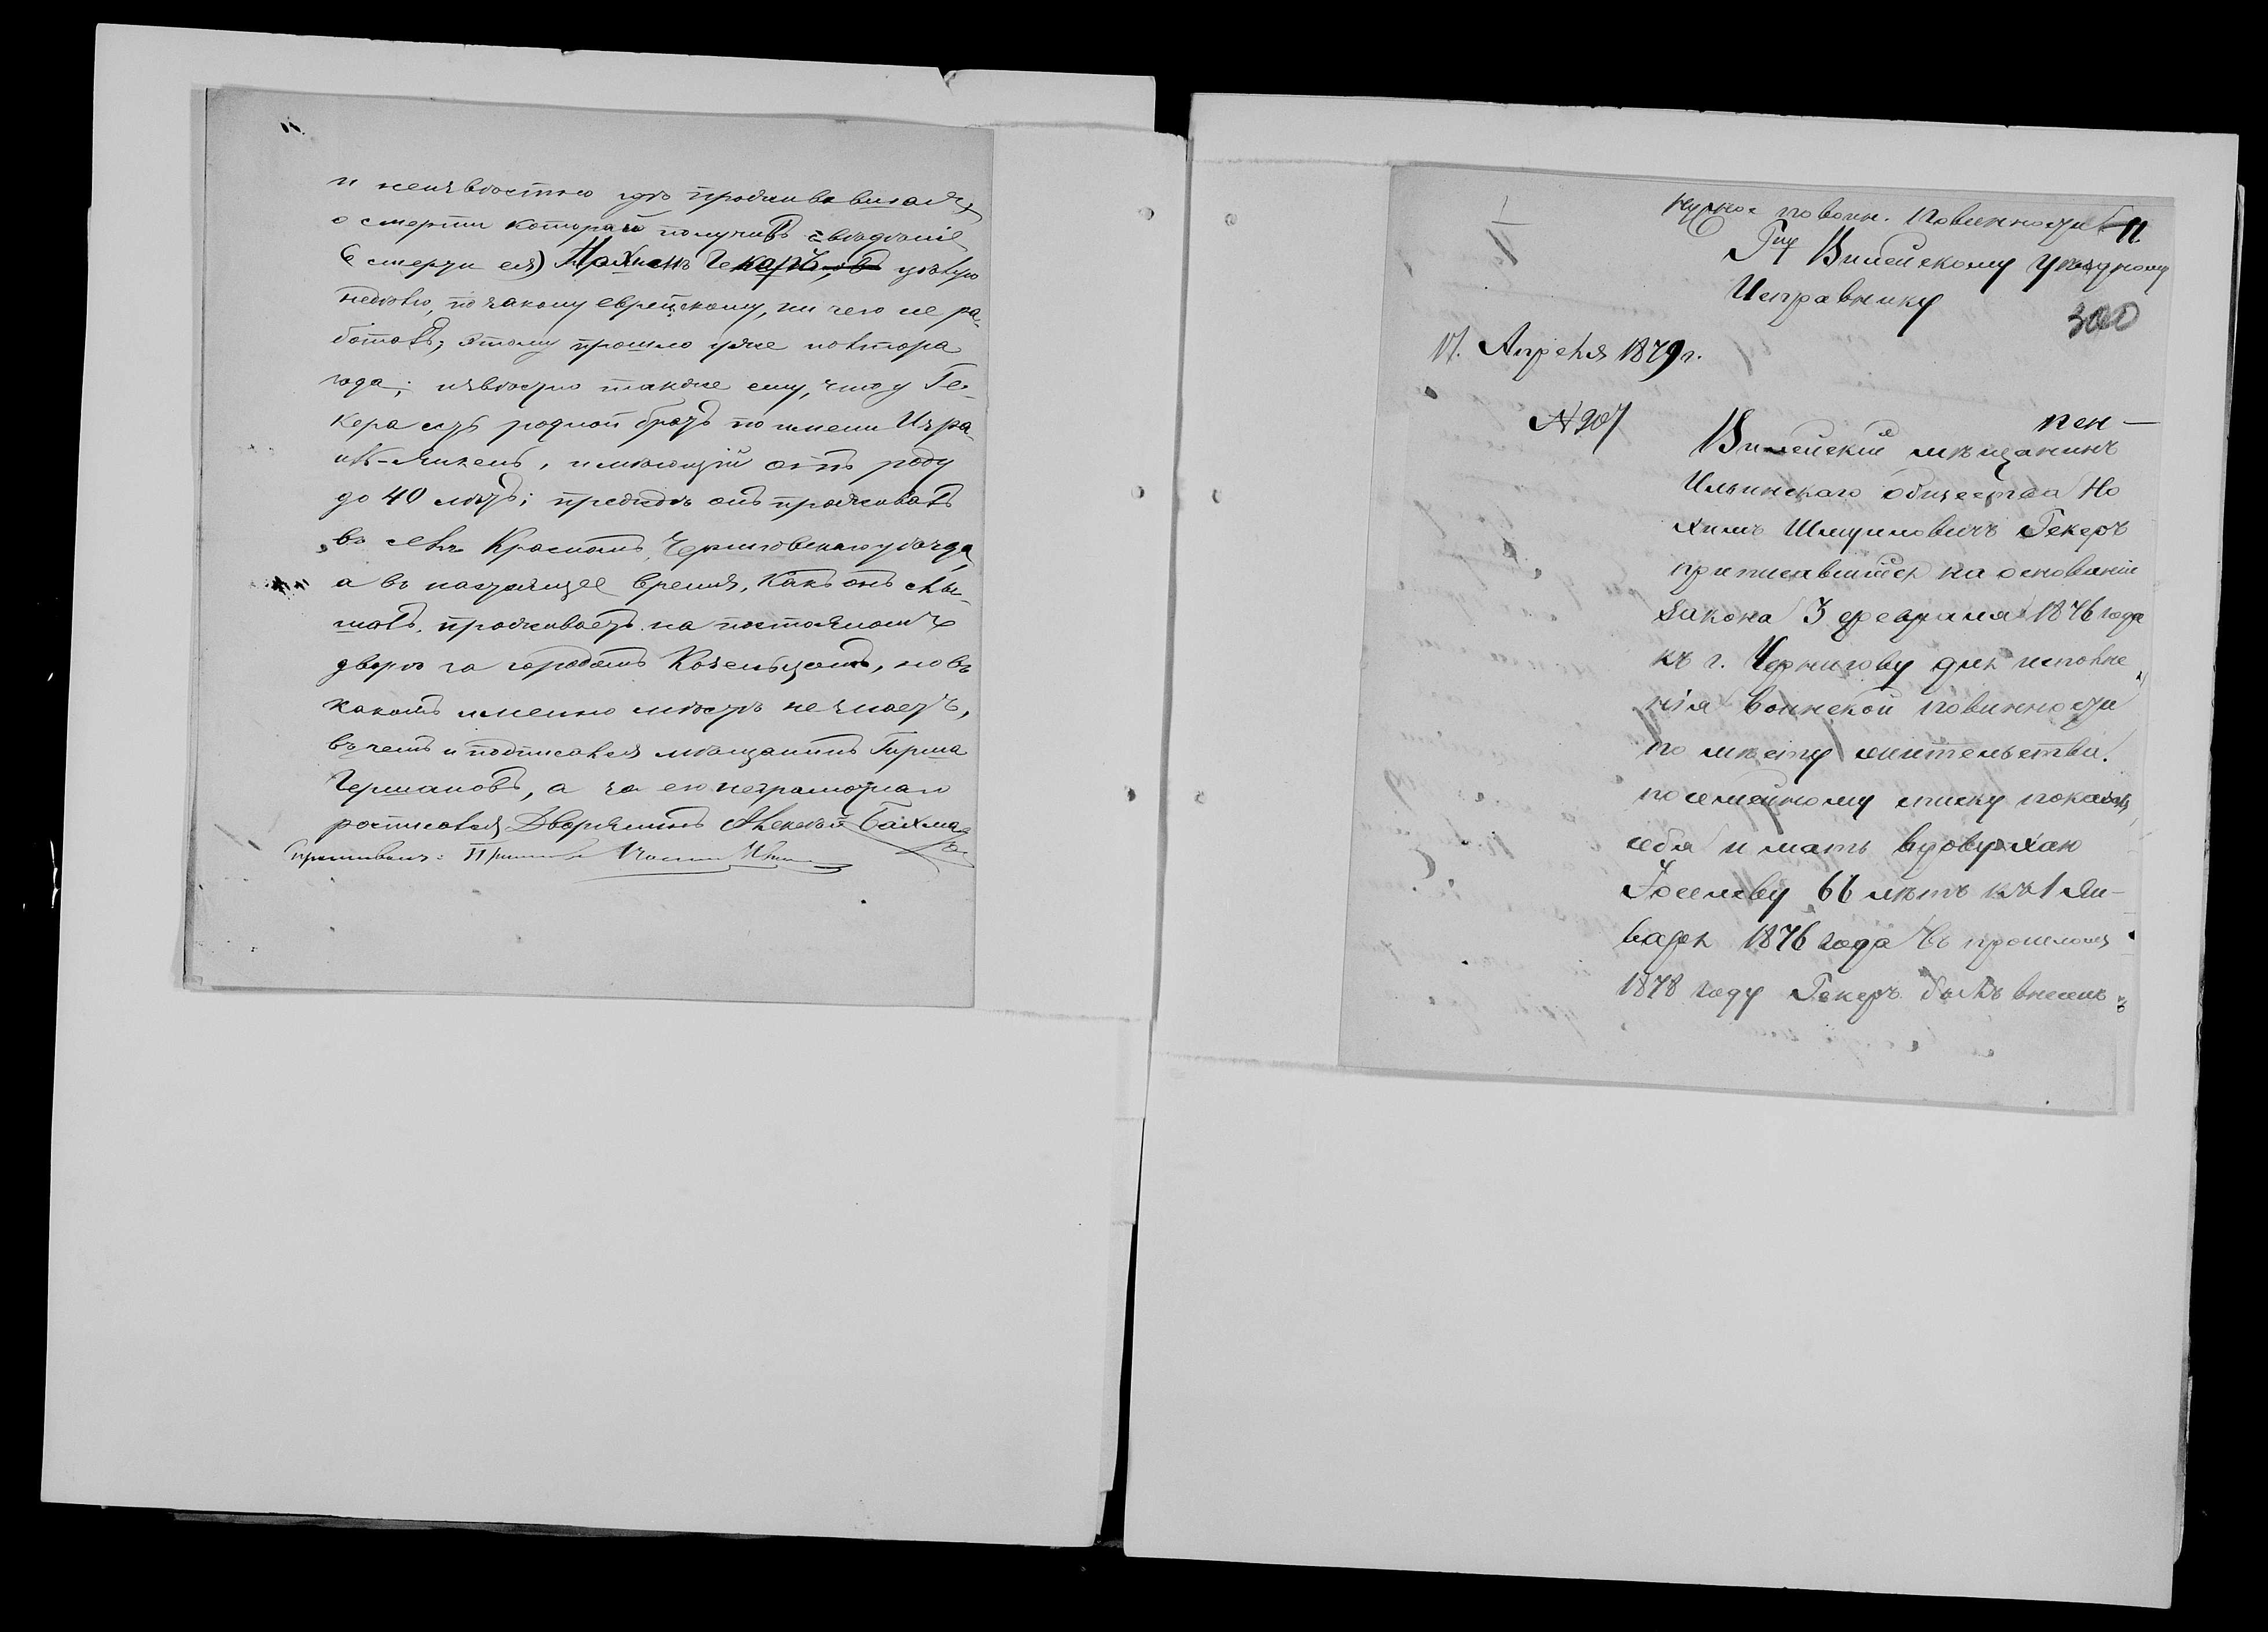 и неизвѣстно гдѣ проживавшая,
о смерти которой получивъ свѣдѣніе
(о смерти ея) Нохимъ Гекеръ цѣлую
недѣлю, по закону еврейскому, ни чего не ра-
боталъ; этому прошло уже полтора
года; извѣстно также ему, что у Ге-
кера есть родной братъ по имени Изра-
иль-Янкель, имѣющій отъ роду
до 40 лѣтъ; прежде онъ проживалъ
въ селѣ Красномъ, Черниговскаго уѣзда,
а въ настоящее время, какъ онъ слы-
шалъ, проживаетъ на постояломъ
дворѣ за городомъ Козельцомъ, но въ
какомъ именно мѣстѣ не знаетъ,
въ чемъ и подписался мѣщанинъ Гирша
Германовъ, а за его неграмотнаго
росписался Дворянинъ Алексѣй
Спрашивалъ:
Нужное по воин. повинности 11.
Гну Вилейскому Уѣздному
Исправнику
300
17. Апрѣля 1879 г.
№ 907
Вилейскій мѣщанинъ
Ильинскаго общества Но
химъ Шмуиловичъ Гекеръ
приписавшійся на основаніи
закона 3 февраля 1876 года
къ г. Чернигову для исполне
нія воинской повинности
по мѣсту жительства.
по семейному списку показалъ
себя и мать вдову Хаю
Іоселеву 66 лѣтъ къ 1 Ян-
варя 1876 года въ прошломъ
1878 году Гекеръ былъ внесенъ